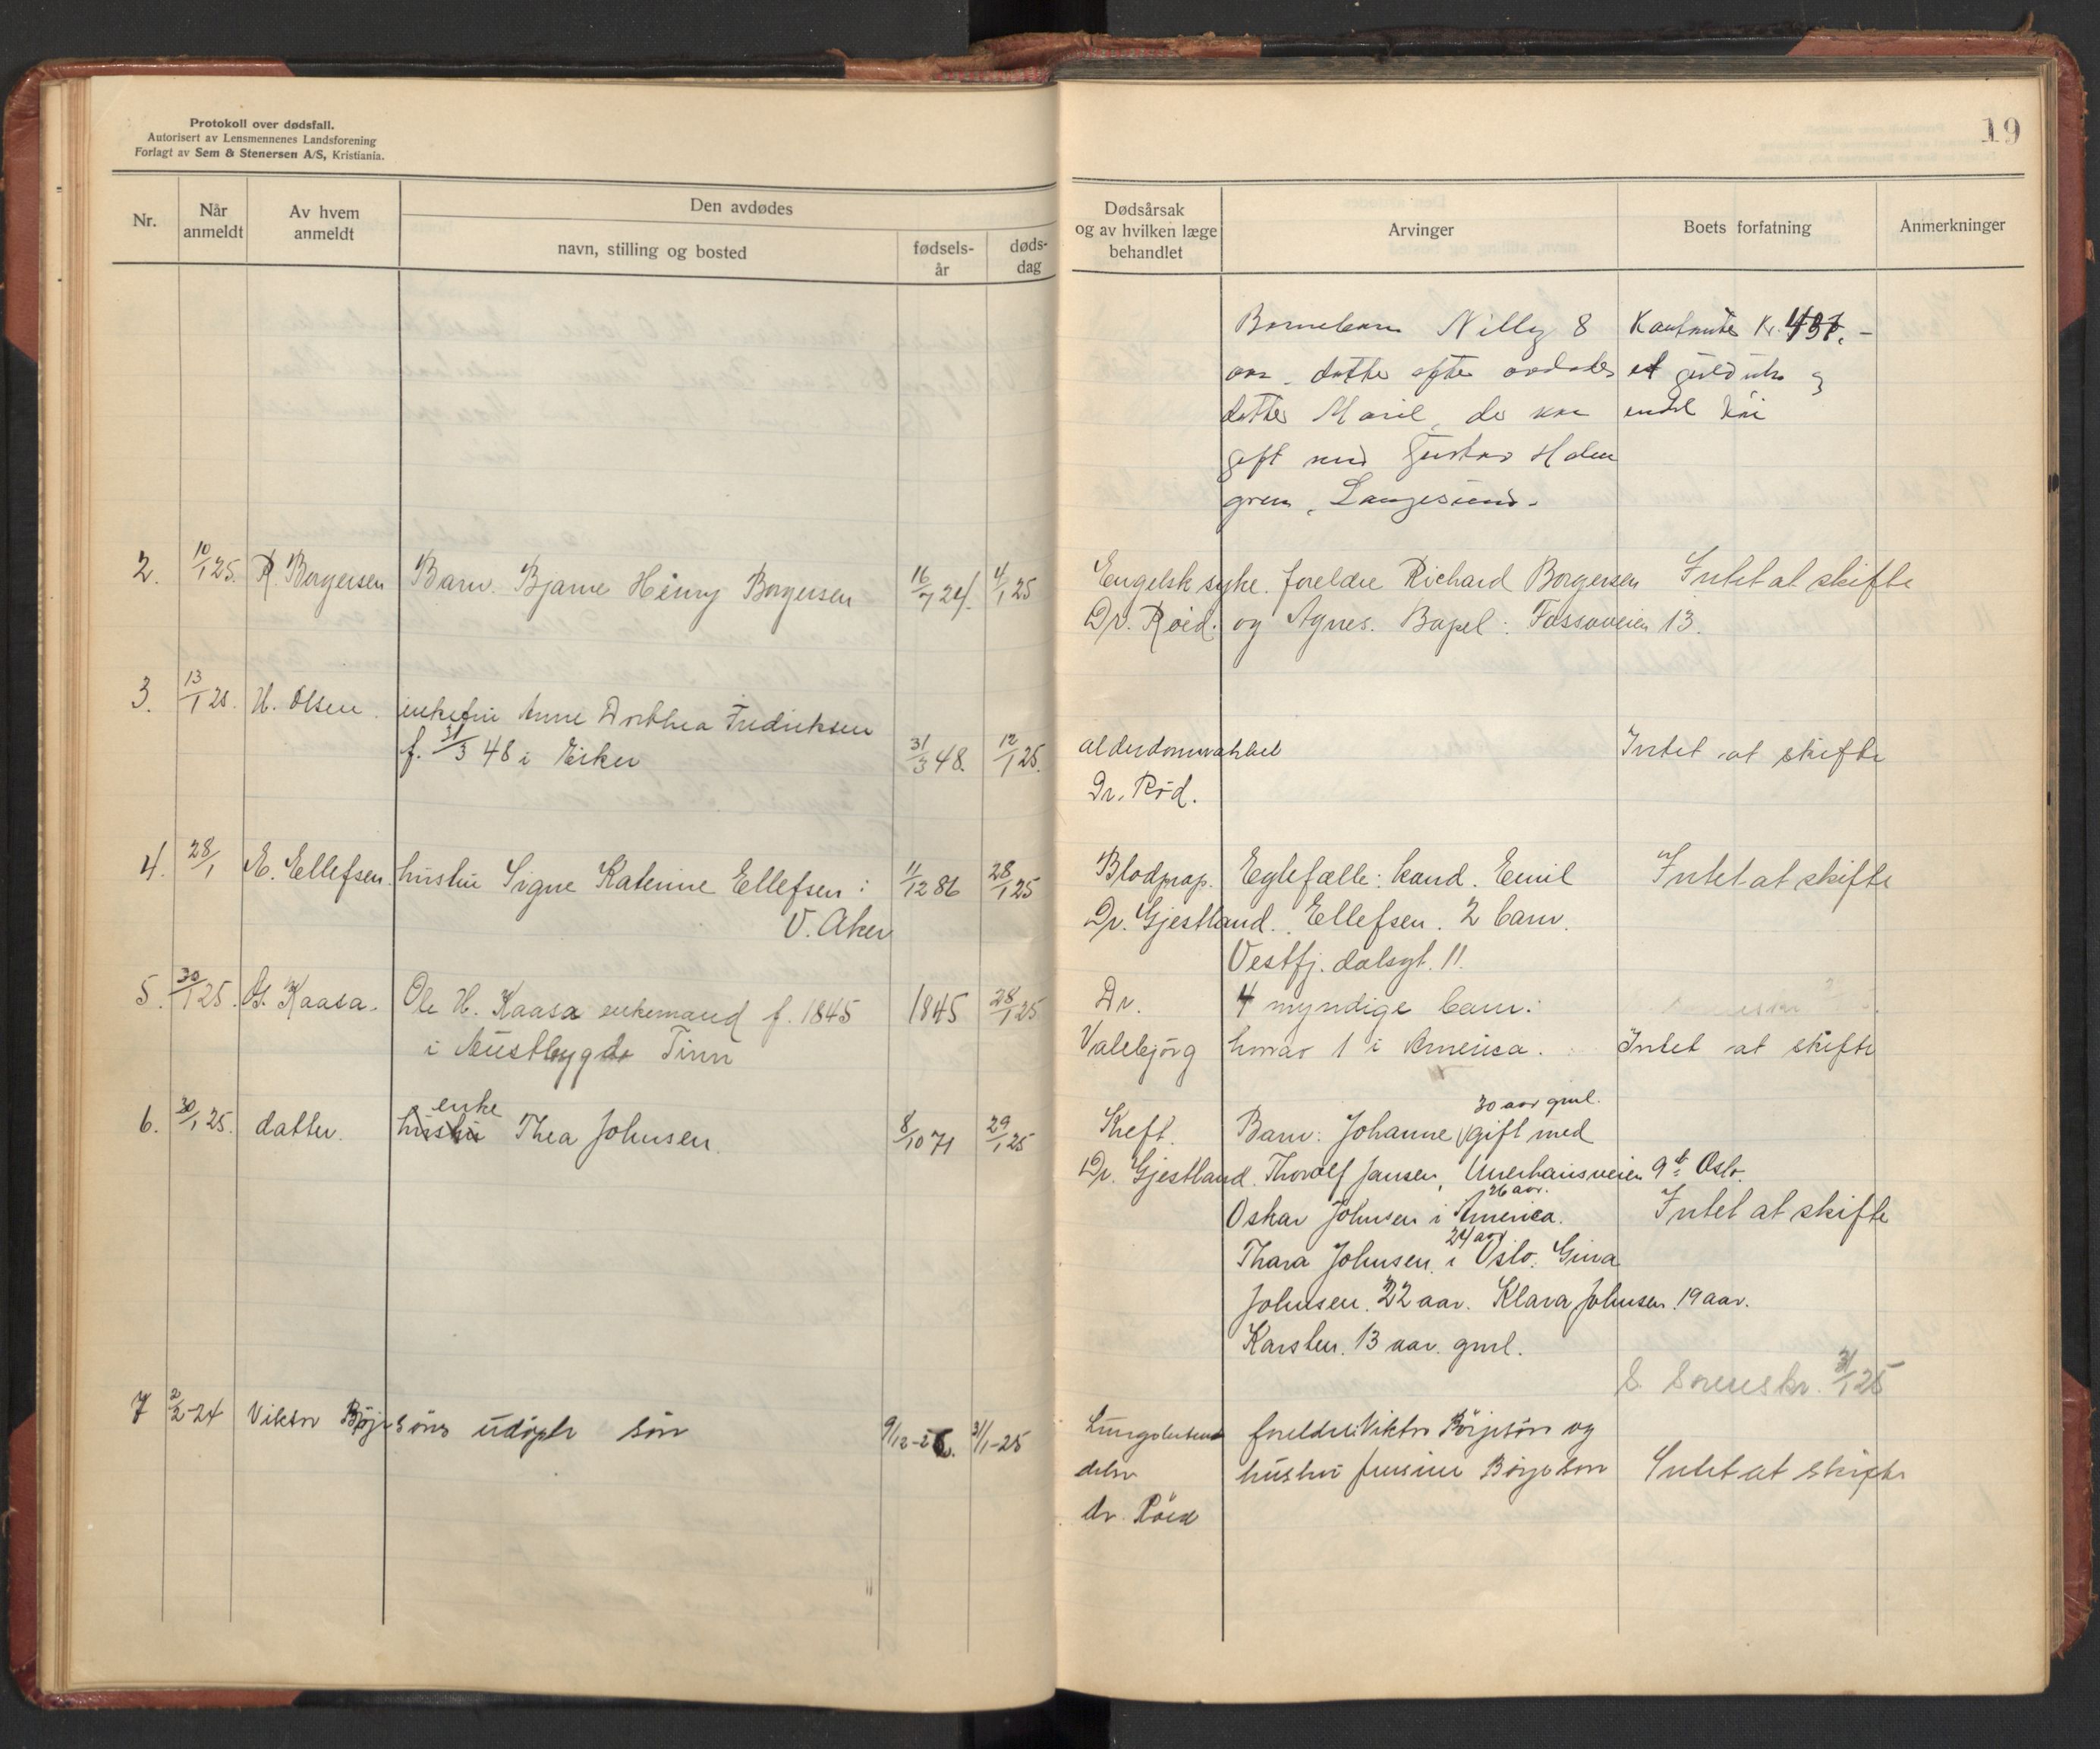 Protokoll over dødsfall.
Autorisert av Lensmennenes Landsforening
Forlagt av Sem & Stenersen A/S, Kristiania.
Nr.
Når anmeldt
Av hvem anmeldt
Den avdødes
navn, stilling og bosted
fødsels-år
døds-dag
2. 10/1 25. R. Borgersen Barn. Bjarne Henry Borgersen 16/7 24. 4/1 25
3. 13/1 25. H. Olsen. enkefru Anne Dorthea Fredriksen
f. 31/3 48 i Eiker 31/3 48. 12/1 25.
4. 28/1 E. Ellefsen. hustru Signe Katerine Ellefsen: 11/12 86 28/1 25
V. Aker
5. 30/1 25. G. Kaasa. Ole H. Kaasa enkemand f. 1845 1845 28/1 25
i Austbygda Tinn
enke
6. 30/1 25. datter. hustru Thea Johnsen. 8/10 71 29/1 25
7 2/2-24 Viktor Børjesöns udøpte sön 9/12-2 31/1-25
19
Dødsårsak og av hvilken læge behandlet
Arvinger
Boets forfatning
Anmerkninger
Barnebarn Nilly 8 Kontanter Kr.
aar, datter efter avdøde et guldur og
datter Maril, der var endel
gift med Gustav Holm
gren, Langesund.
Engelsk syke. foreldre Richard Borgersen Intet at skifte
Dr. Røed. og Agnes. Bopel: Fossoveien 13.
alderdomsvakhet Intet at skifte
Dr. Rød.
Blodprop. Egtefælle: Emil Intet at skifte
Dr. Gjestland. Ellefsen. 2 barn.
Vestfj. dalsgt. 11.
Dr. 4 myndige barn:
Valebjørg hvorav 1 i America. Intet at skifte
30 aar gml.
Kreft. Barn: Johanne, gift med
Dr. Gjestland. Thorolf Jansen, 9 b Oslo.
26 aar.
Oskar Johnsen i America. Intet at skifte
24 aar
Thara Johnsen i Oslo. Gina
Johnsen. 22 aar. Klara Johnsen. 19 aar.
Karsten. 13 aar. gml.
S. Sorenskr. 31/1 25
foreldre: Viktor Börjesön og
hustru Börjeson Intet at skifte
dr. Röed